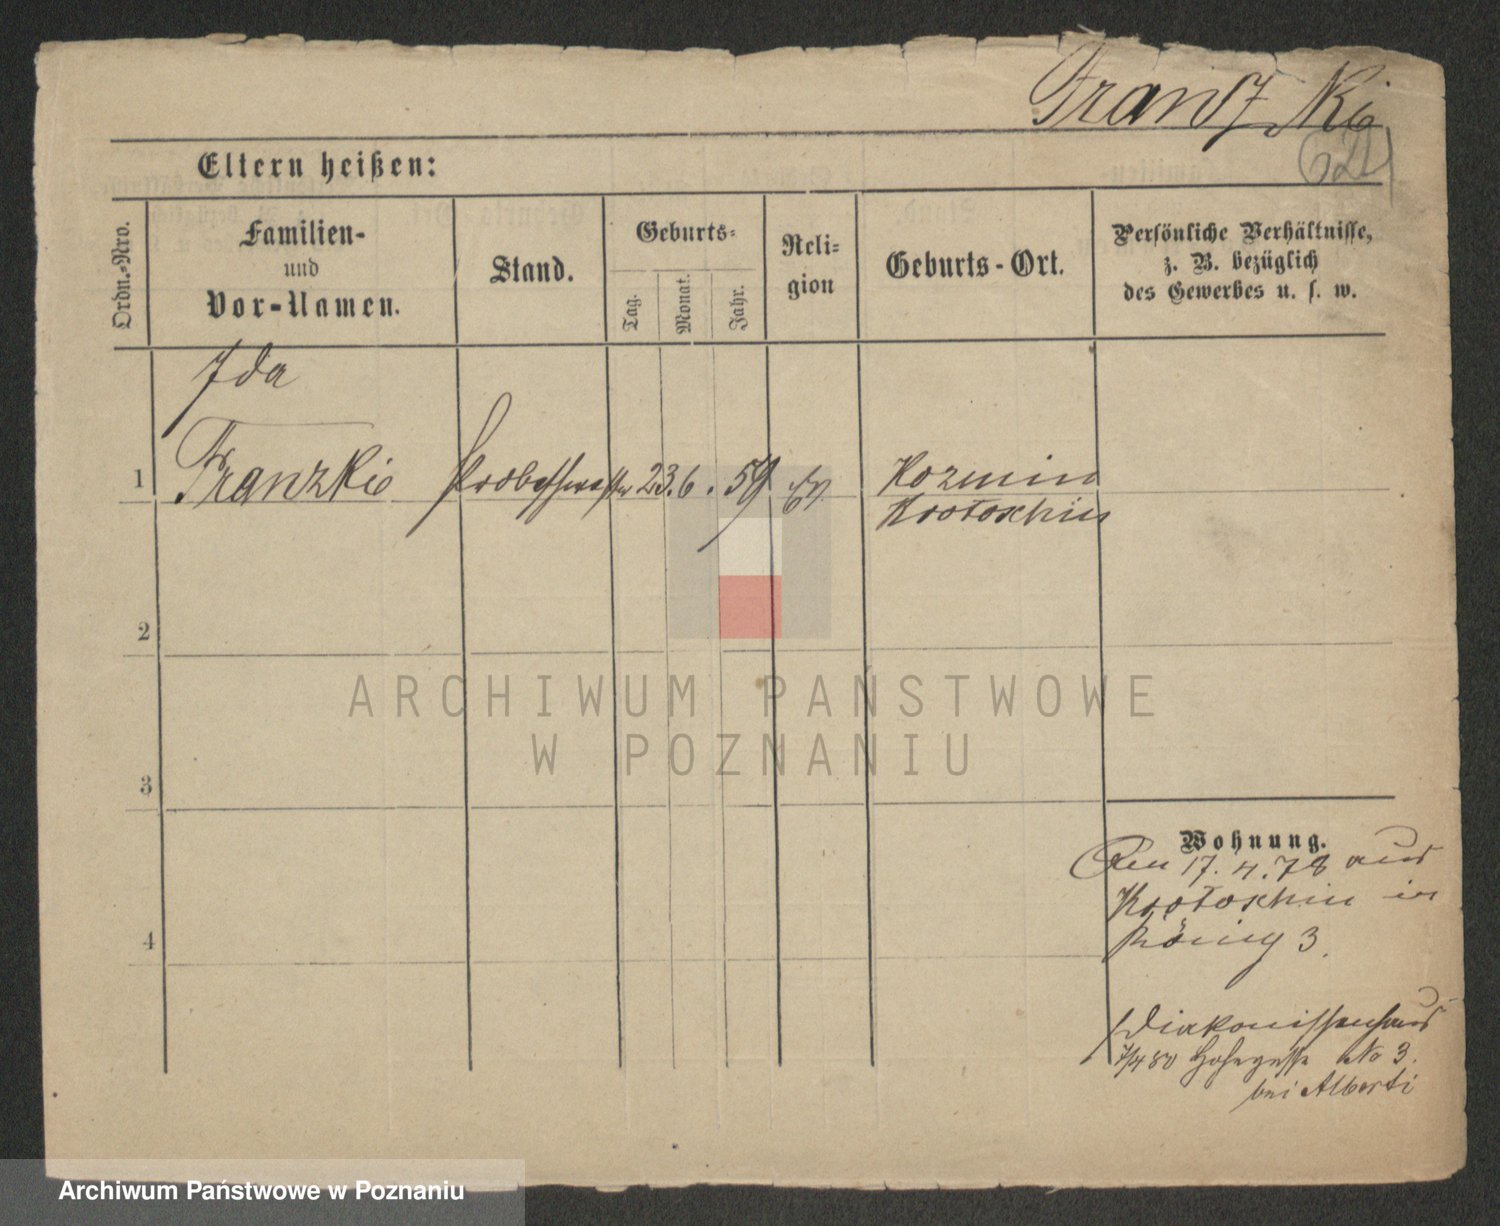 Franzki
Eltern heißen:
Ordn.-Nro.
Familien-
und
Vor-Namen.
Stand.
Geburts-
Tag.
Monat.
Jahr.
Reli-
gion
Geburts-Ort.
Persönliche Verhältnisse,
z. B. bezüglich
des Gewerbes u. s. w.
Ida
1 Franzki Probeschwester 23. 6. 59 Ev. Kozmin
Krotoschin
2
3
4
Wohnung.
Den 17. 4. 78 aus
Krotoschin in
König 3.
Diakonissenhaus
7/4 80 No 3.
bei Alberti
ARCHIWUM PAŃSTWOWE
W POZNANIU
Archiwum Państwowe w Poznaniu